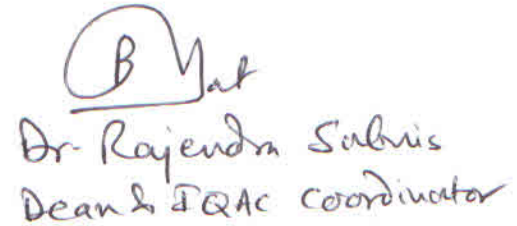 Dr. Rajendra Sabnis
Dean & IQAC Coordinator